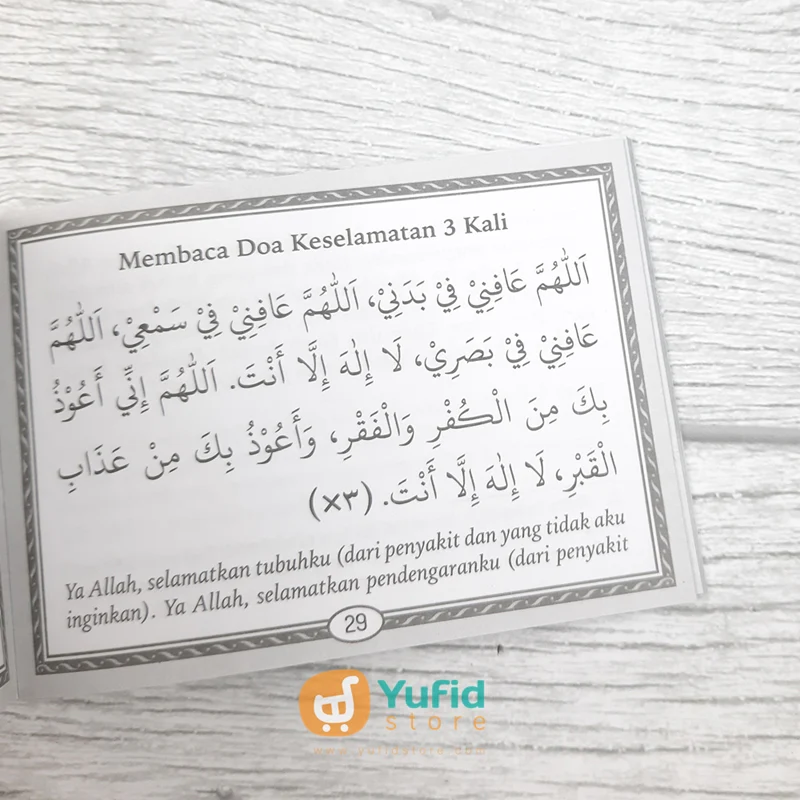 Membaca Doa Keselamatan 3 Kali
اَللّٰهُمَّ عَافِنِيْ فِيْ بَدَنِيْ، اَللّٰهُمَّ عَافِنِيْ فِيْ سَمْعِيْ، اَللّٰهُمَّ
عَافِنِيْ فِيْ بَصَرِيْ، لَا إِلٰهَ إِلَّا أَنْتَ. اَللّٰهُمَّ إِنِّي أَعُوْذُ
بِكَ مِنَ الْكُفْرِ وَالْفَقْرِ، وَأَعُوْذُ بِكَ مِنْ عَذَابِ
الْقَبْرِ، لَا إِلٰهَ إِلَّا أَنْتَ. (٣×)
Ya Allah, selamatkan tubuhku (dari penyakit dan yang tidak aku
inginkan). Ya Allah, selamatkan pendengaranku (dari penyakit
29
Yufid
store
www.yufidstore.com